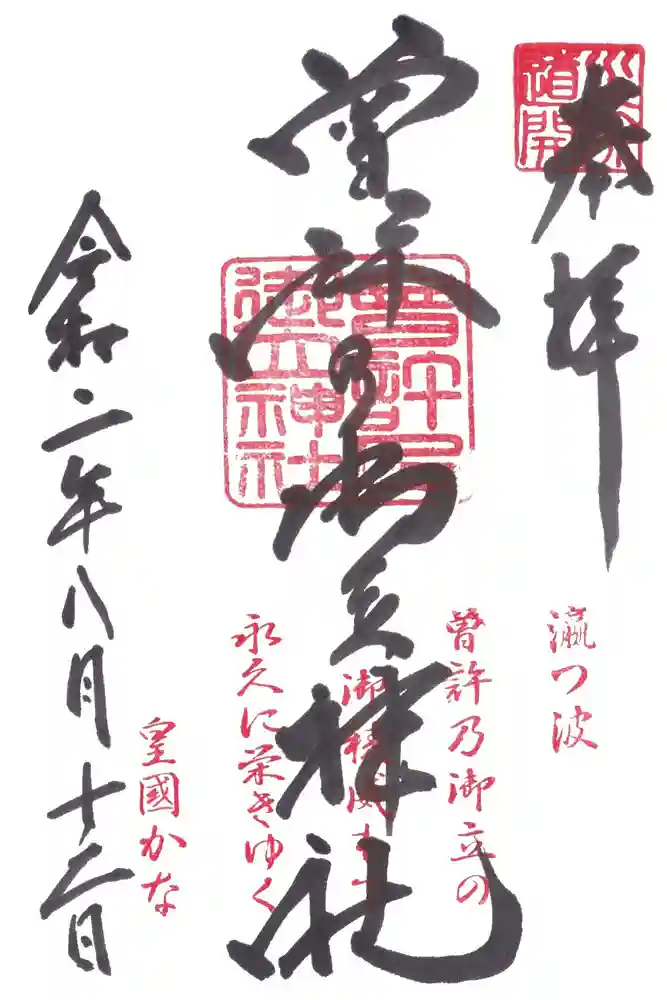 奉拝
道開
瀛つ波
曾許乃御立の
曾許乃御立神社
曾許乃
御立神社
御稜威
永久に栄えゆく
皇國かな
令和二年八月十二日